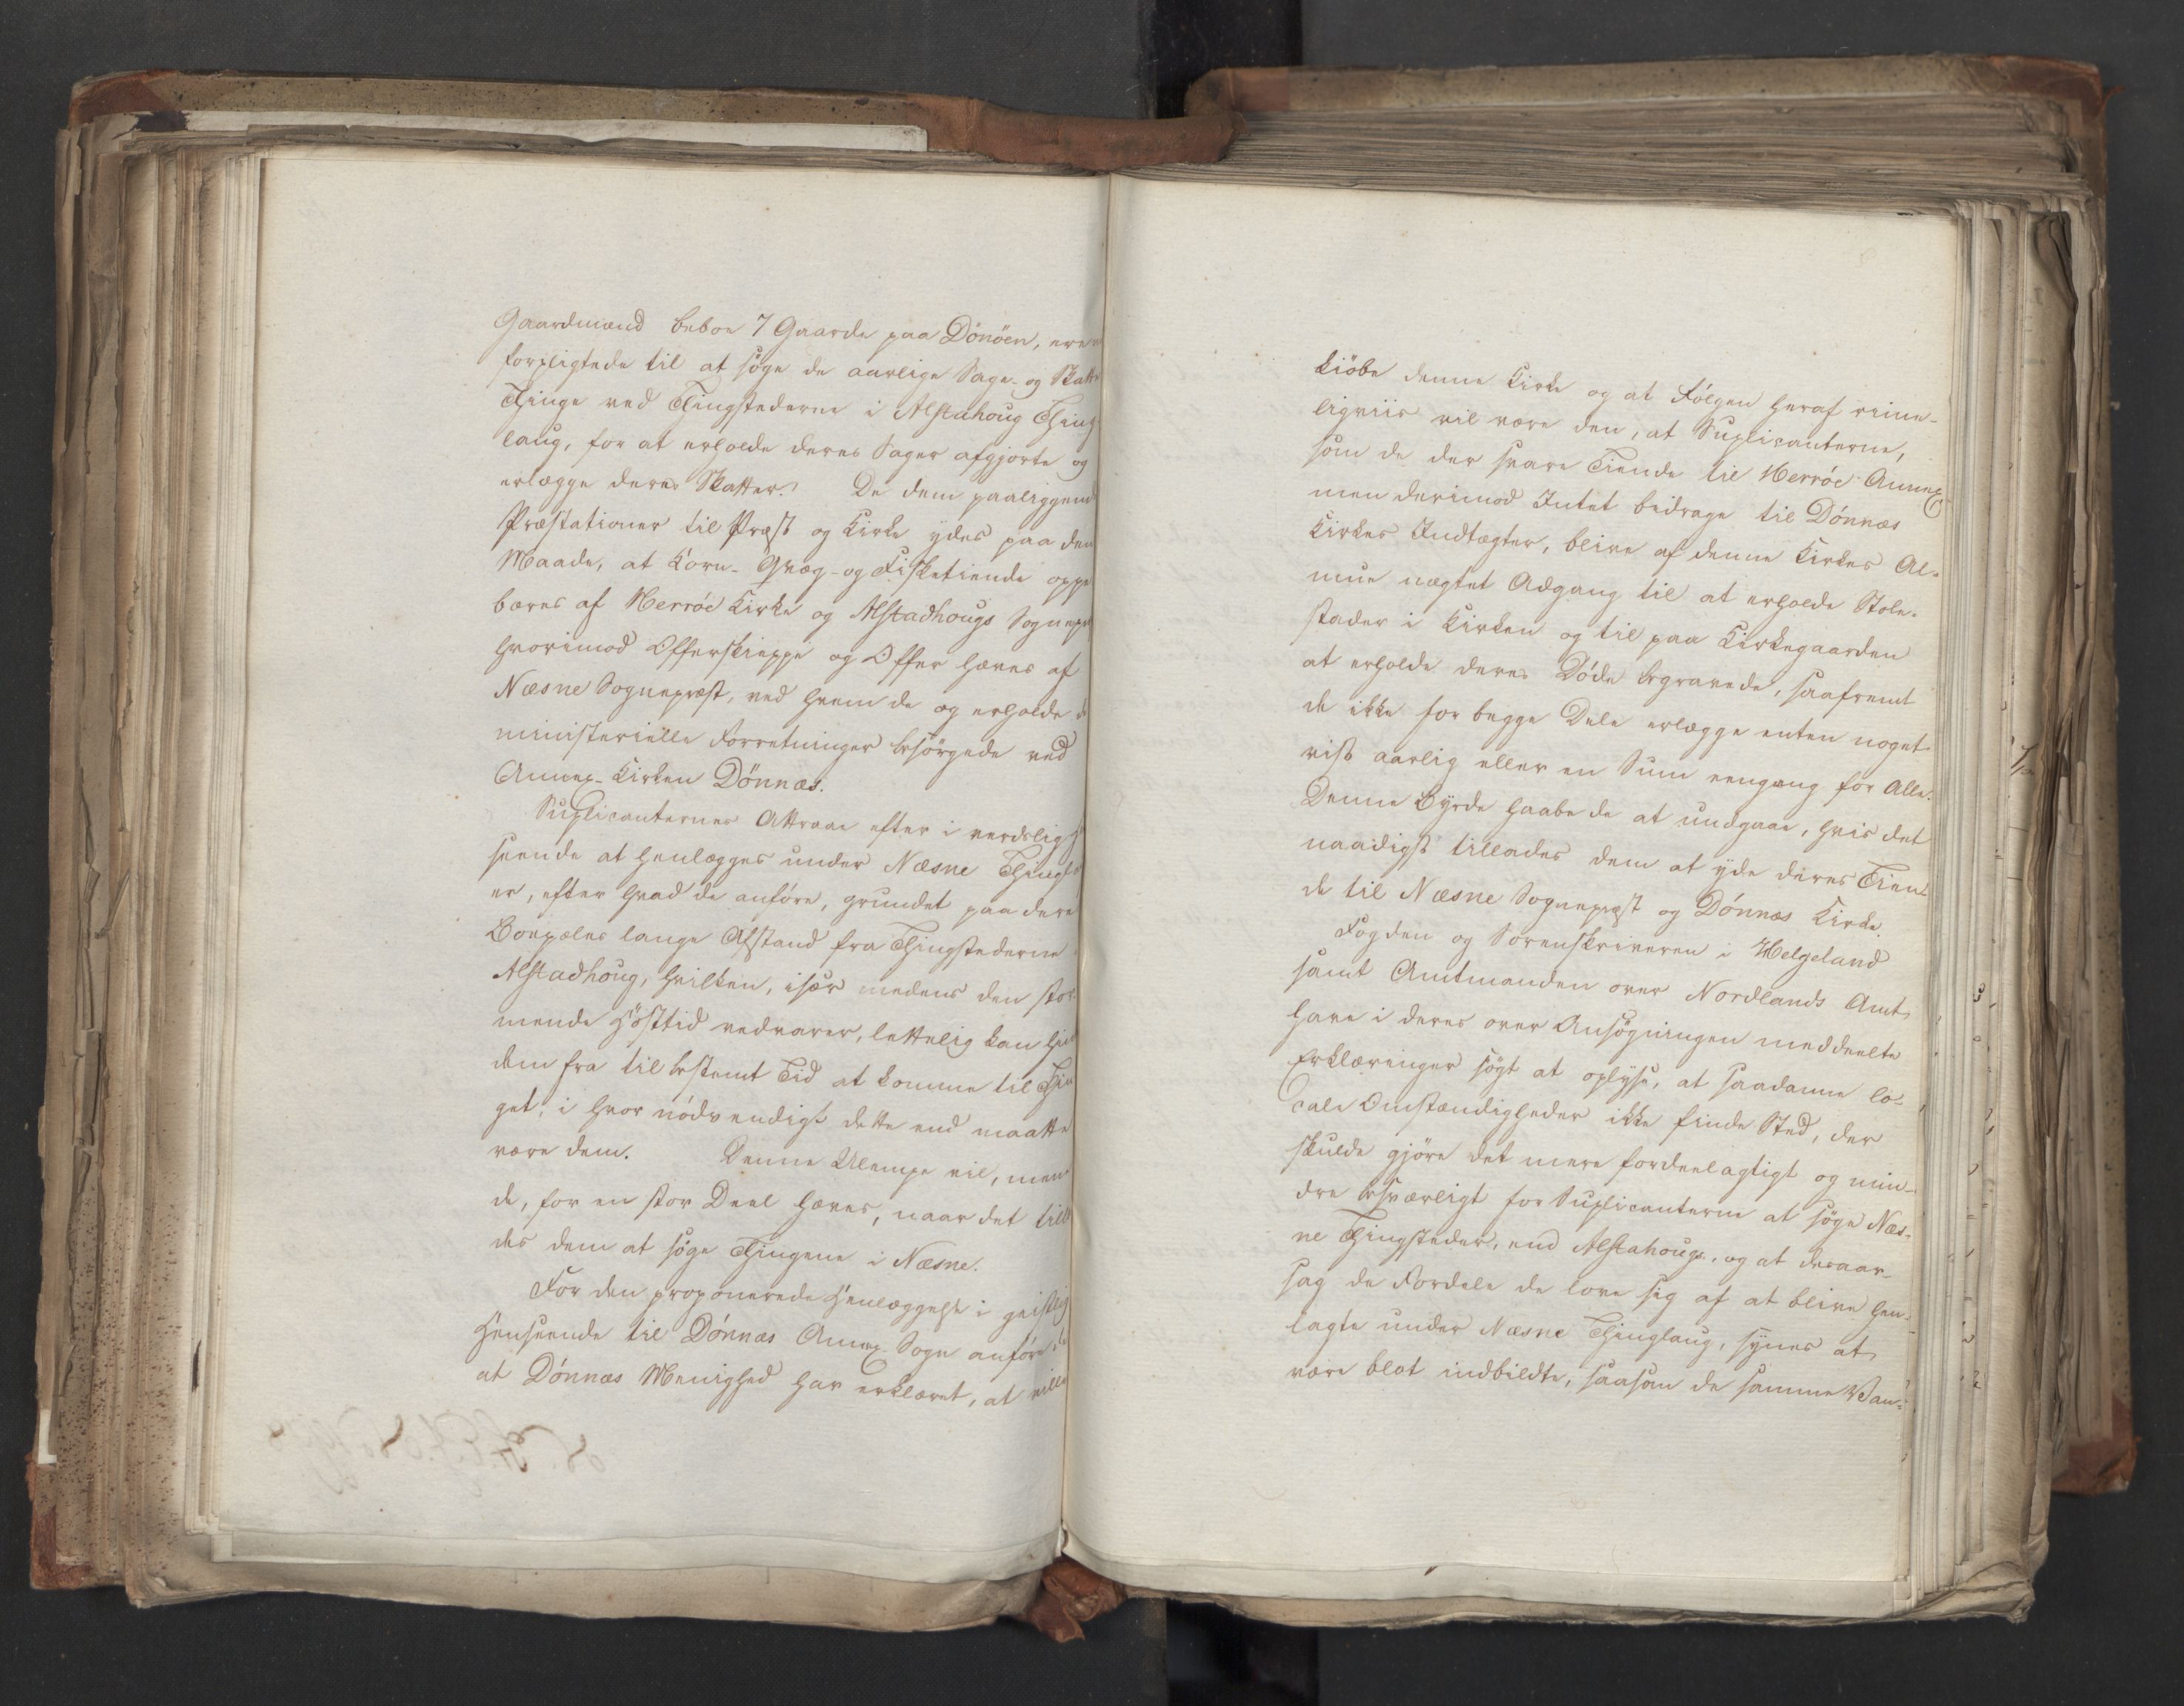 Gaardmænd beboe 7 Gaarde paa Dönöen, ere
forpligtede til at søge de aarlige Sage- og Skatte
Thinge ved Thingstederne i Alstahoug Thing
laug, for at erholde deres Sager afgjorte og
erlægge deres Skatter. De dem paaliggende
Præstationer til Præst og Kirke ydes paa den
Maade, at Korn- Qvæg- og Fisketiende oppe
bæres af Herröe Kirke og Alstadhougs Sognepr
hvorimod Offerskieppe og Offer hæves af
Næsne Sognepræst, ved hvem de og erholde de
ministerielle Forretninger besørgede ved
Annex-Kirken Dönnæs.
Suplicanternes Attraae efter i verdslig
seende at henlægges under Næsne Thingl
er, efter hvad de anføre, grundet paa dere
Boepæles lange Afstand fra Thingstederne
Alstadhoug, hvilken, især medens den stor-
mende Høsttid vedvarer, lettelig kan hin
dem fra til bestemt Tid at komme til Thin
get, i hvor nödvendigt dette end maatte
være dem. Denne Ulempe vil, mene
de, for en stor Deel hæves, naar det tilla
des dem at søge Thingene i Næsne.
For den proponerede Henlæggelse i geistlig
Henseende til Dönnæs Annex-Sogn anföre de
at Dönnæs Menighed har erklæret, at ville
kiöbe denne Kirke og at Følgen heraf rime-
ligviis vil være den, at Suplicanterne,
som de der svare Tiende til Herröe Annex
men derimod Intet bidrage til Dönnæs
Kirkes Indtægter, blive af denne Kirkes Al-
mue nægtet Adgang til at erholde Stole-
stader i Kirken og til paa Kirkegaarden
at erholde deres Döde begravede, saafremt
de ikke for begge Dele erlægge enten noget
vist aarlig eller en Sum eengang for Alle.
Denne Byrde haabe de at undgaae, hvis det
naadigst tillades dem at yde deres Tien-
de til Næsne Sognepræst og Dönnæs Kirke.
Fogden og Sorenskriveren i Helgeland
samt Amtmanden over Nordlands Amt
have i deres over Ansøgningen meddeelte
Erklæringer søgt at oplyse, at saadanne lo-
cale Omstændigheder ikke finde Sted, der
skulde gjöre det mere fordeelagtigt og min-
dre besværligt for Suplicanterne at søge Næs-
ne Thingsteder, end Alstahougs, og at desaar-
sag de Fordele de love sig af at blive hen-
lagte under Næsne Thinglaug, synes at
være blot indbildte, saasom de samme Van-